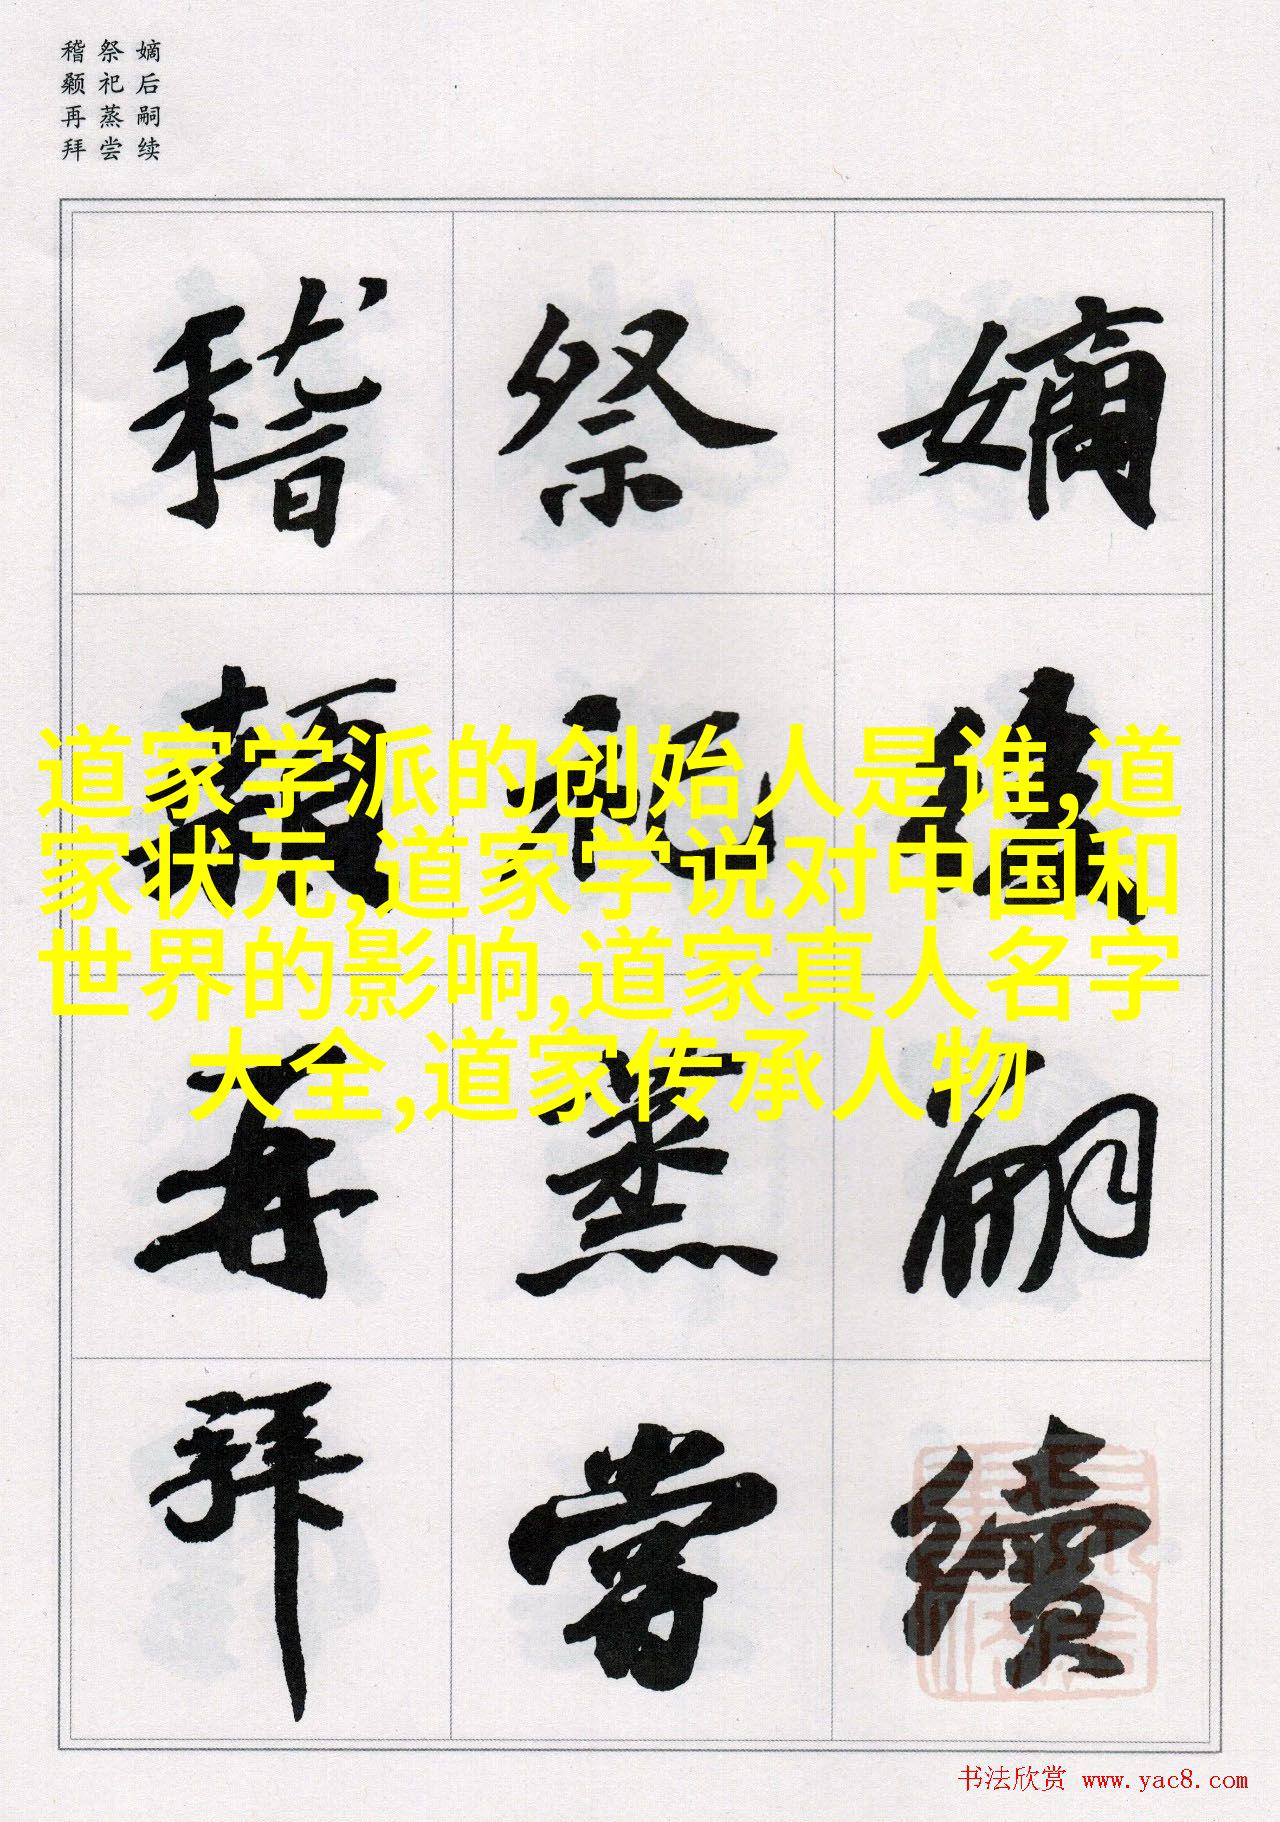 嫡后嗣续
祭祀蒸尝
稽颡再拜
嫡後嗣續
祭祀蒸嘗
稽顙再拜
道家学派的创始人是谁,道
家状元,道家学说对中国和
世界的影响,道家真人名字
大全,道家传承人物
书法欣赏 www.yac8.com